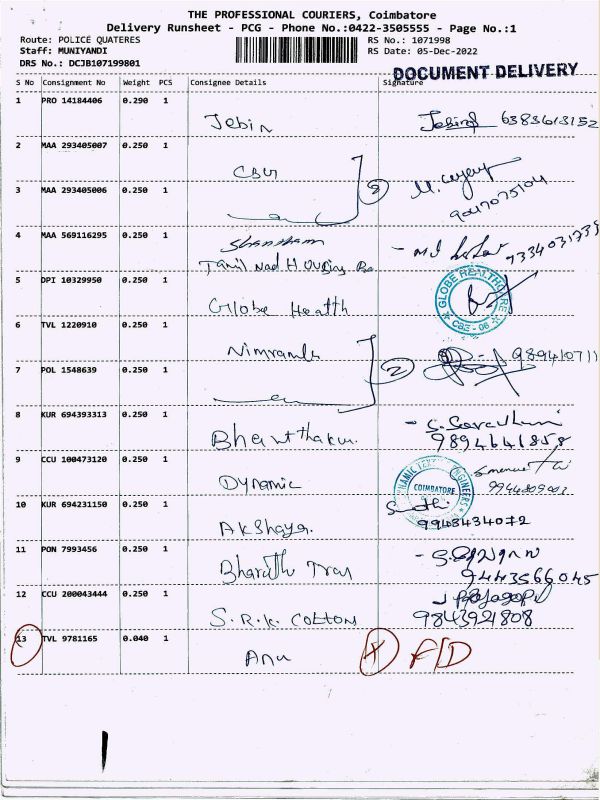 THE PROFESSIONAL COURIERS, Coimbatore
Delivery Runsheet - PCG - Phone No.:0422-3505555 - Page No.:1
Route: POLICE QUATERES RS No.: 1071998
Staff: MUNIYANDI RS Date: 05-Dec-2022
DRS No.: DCJB107199801
DOCUMENT DELIVERY
S No Consignment No Weight PCS Consignee Details Signature
1 PRO 14184406 0.290 1
Jebin 6383613152
2 MAA 293405007 0.250 1
3 MAA 293405006 0.250 1
2
4 MAA 569116295 0.250 1
Shantham
Tamil Nad Housing
5 DPI 10329950 0.250 1
Globe Health
GLOBE HEALTHCARE CBE - 06
6 TVL 1220910 0.250 1
7 POL 1548639 0.250 1
2
8 KUR 694393313 0.250 1
9894641858
9 CCU 100473120 0.250 1
Dynamic
COIMBATORE
10 KUR 694231150 0.250 1
Akshaya. 9943434072
11 PON 7993456 0.250 1
Bharath 9443566045
12 CCU 200043444 0.250 1
S.R.K. COTTON 9843921808
13 TVL 9781165 0.040 1
Anu X F/D